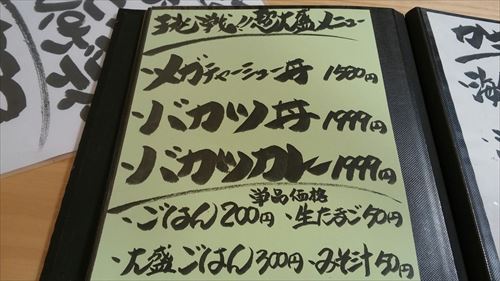 挑戦!!超大盛メニュー
・メガチャーシュー丼 1500円
・バカツ丼 1999円
・バカツカレー 1999円
単品価格
・ごはん200円・生たまご50円
・大盛ごはん300円・みそ汁50円